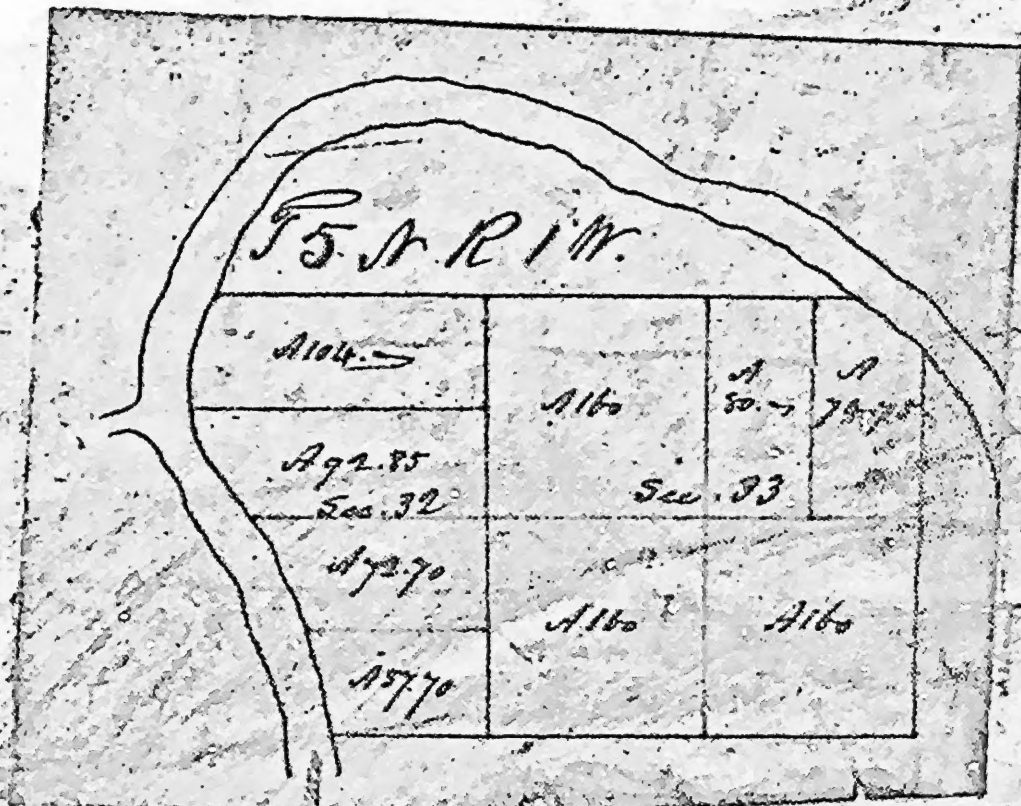 T 5. N. R 1 W.
A 104.
A 160
A 80.
A
A 92.85
Sec. 32
Sec. 33
A 72.70
A 160
A 160
A 57.70